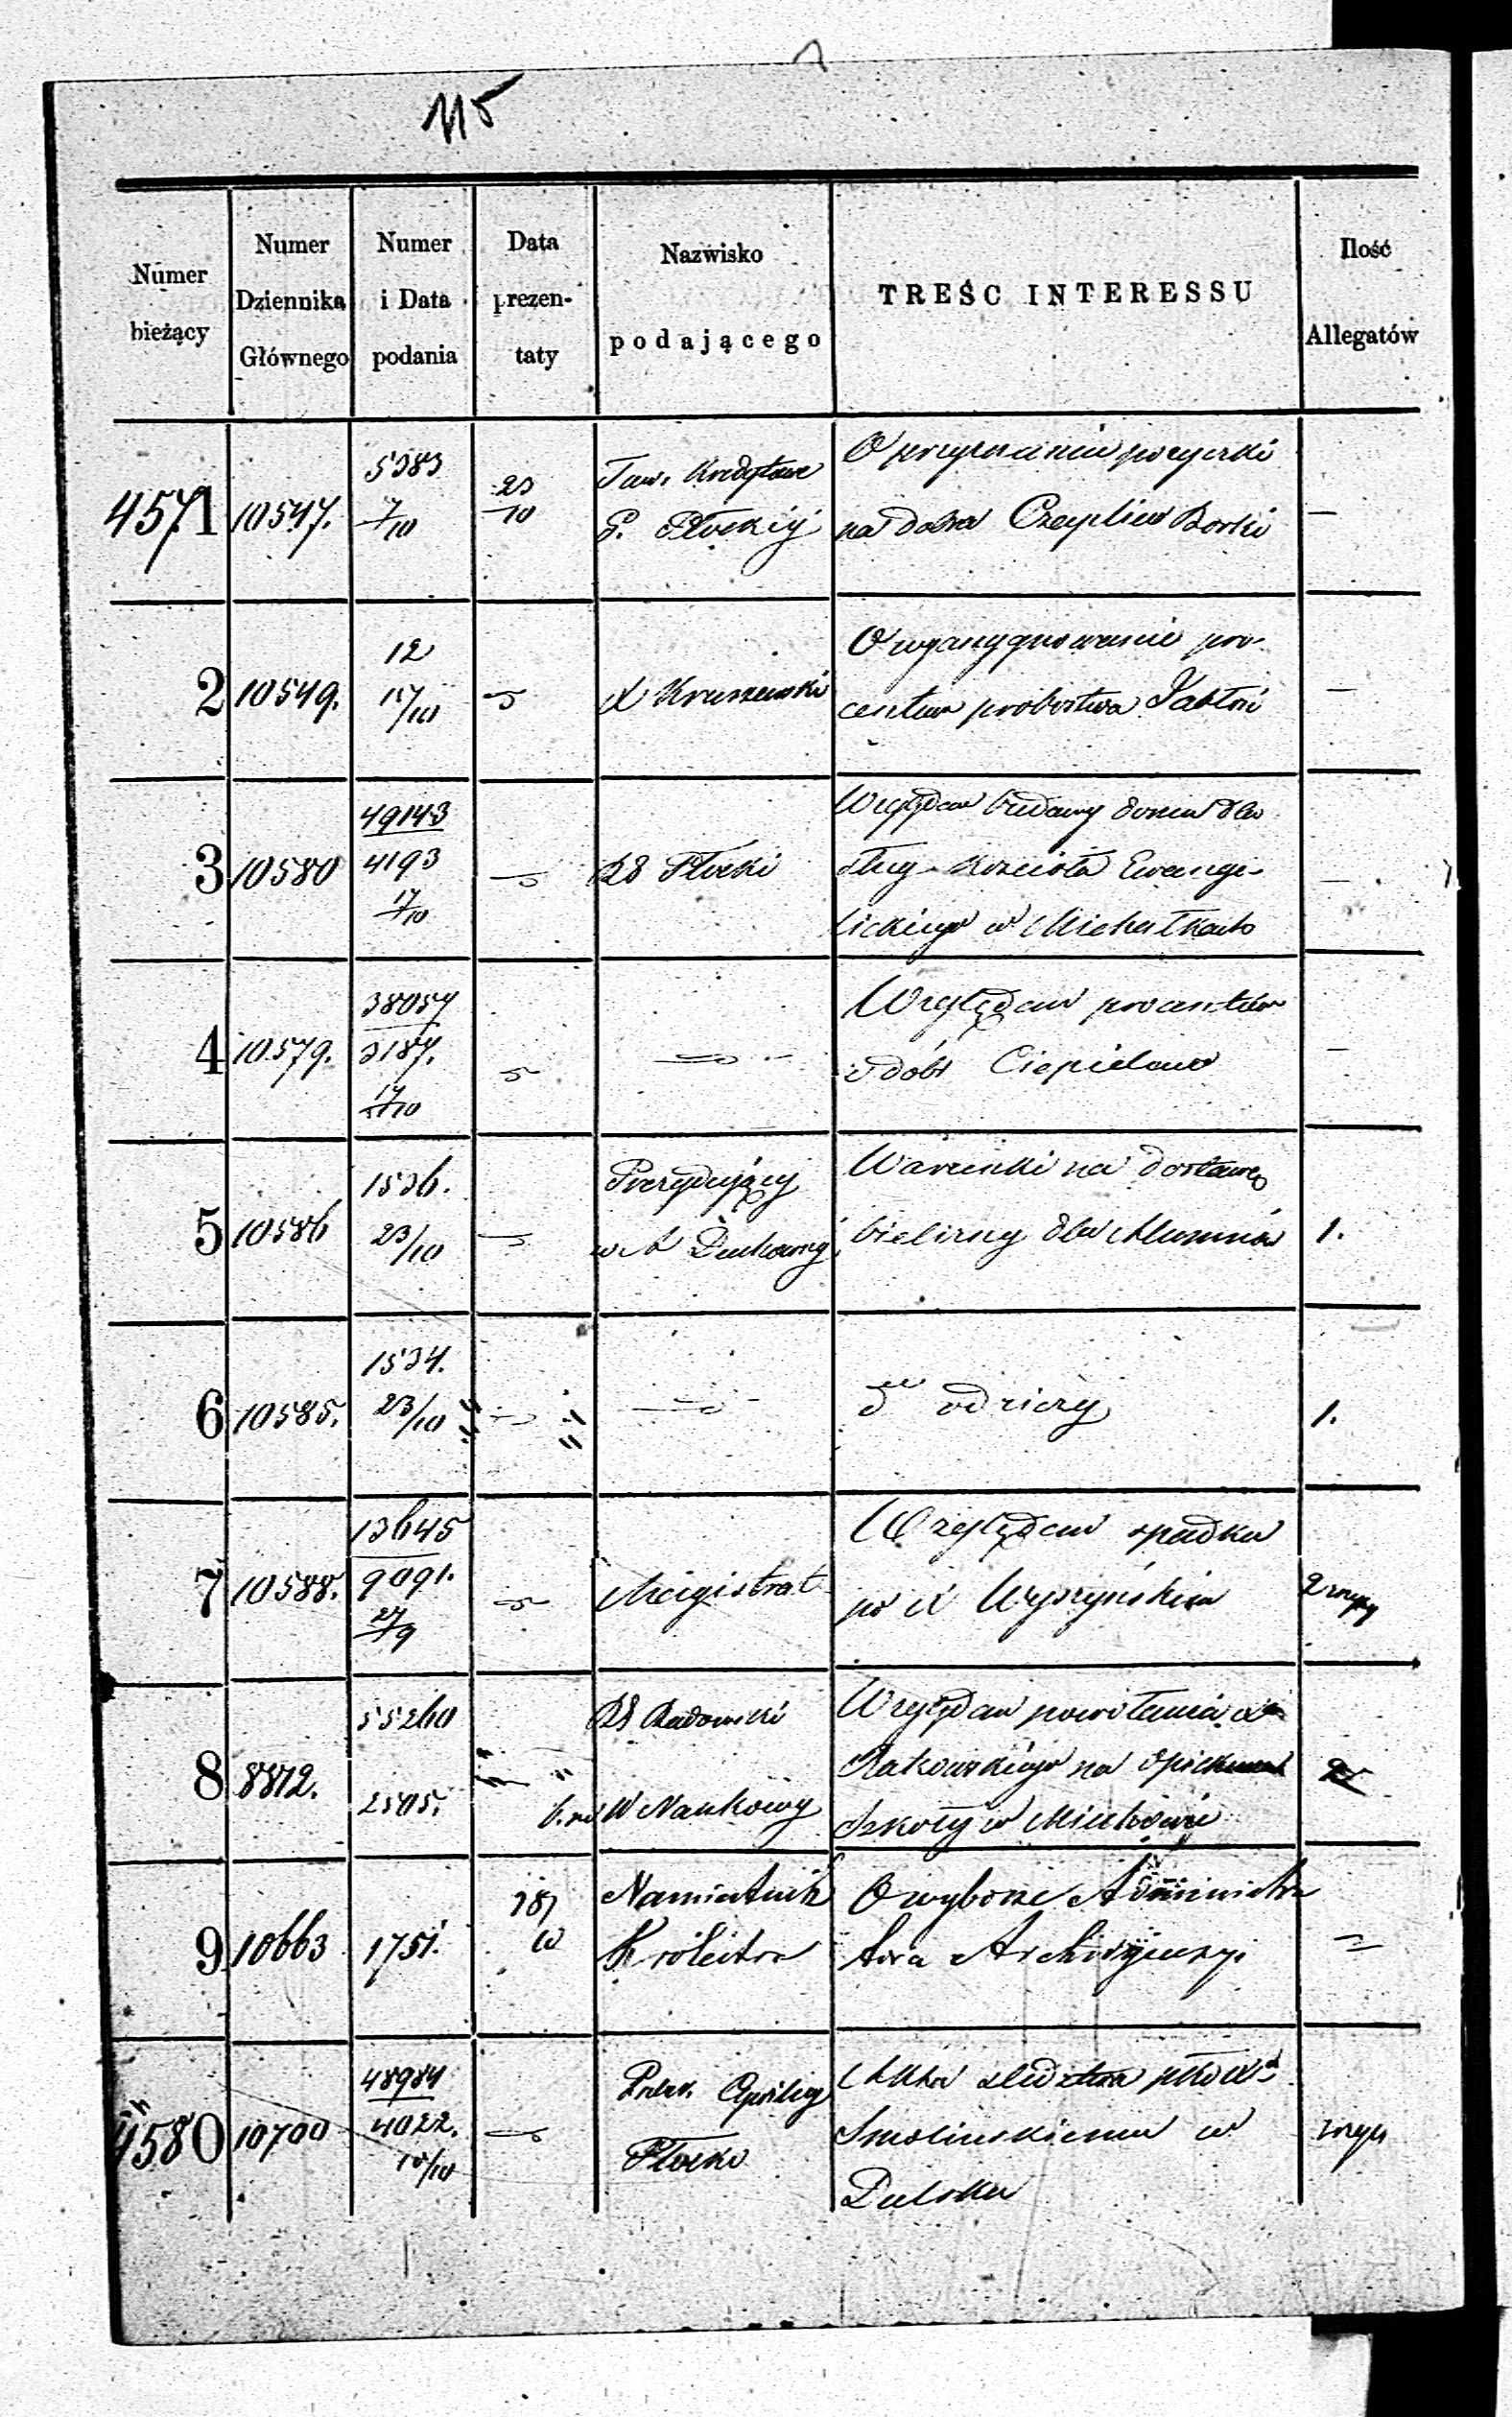 115
Numer bieżący
Numer Dziennika Głównego
Numer i Data podania
Data prezen- taty
Nazwisko podającego
TREŚC INTERESSU
Ilość Allegatów
4571 10547. 5383 7/10 23/10
Tow. Kredytowe
G. Płockiej
O przyznaniu pożyczki
na dobra Czaplice Borki
—
2 10549. 12 15/10
X Kruszewski
O wyasygnowanie pro-
centu probostwa Jabłoń
—
3 10580 49143 4193 17/10
RG Płocki
Względem budowy domu dla
sług Kościoła Ewange-
lickiego w Michałkach
—
4 10579. 38057 3187. 17/10
Względem procentów
z dóbr Ciepielewo
—
5 10586 1536. 23/10
Prezydujący
w Duchowny
Warunki na dostawę
bielizny dla Alumnów
1.
6 10585. 1534. 23/10
d odzieży
1.
7 10588. 13645 9091. 27/9
Magistrat
Względem spadku
po X Wyszyńskim
2
8 8812. 55260 2505.
RG Radomski
W Naukowy
Względem powołania X
Rakowskiego na opiekuna
Szkoły w Miechowie
2
9 10663 1751.
Namiestnik
Królestwa
O wyborze Administra
tora Archidyecezyi
4580 10700 48984 4022. 10/10
Płocki
Akta śledztwa
Smolińskiemu w
Pułtusku